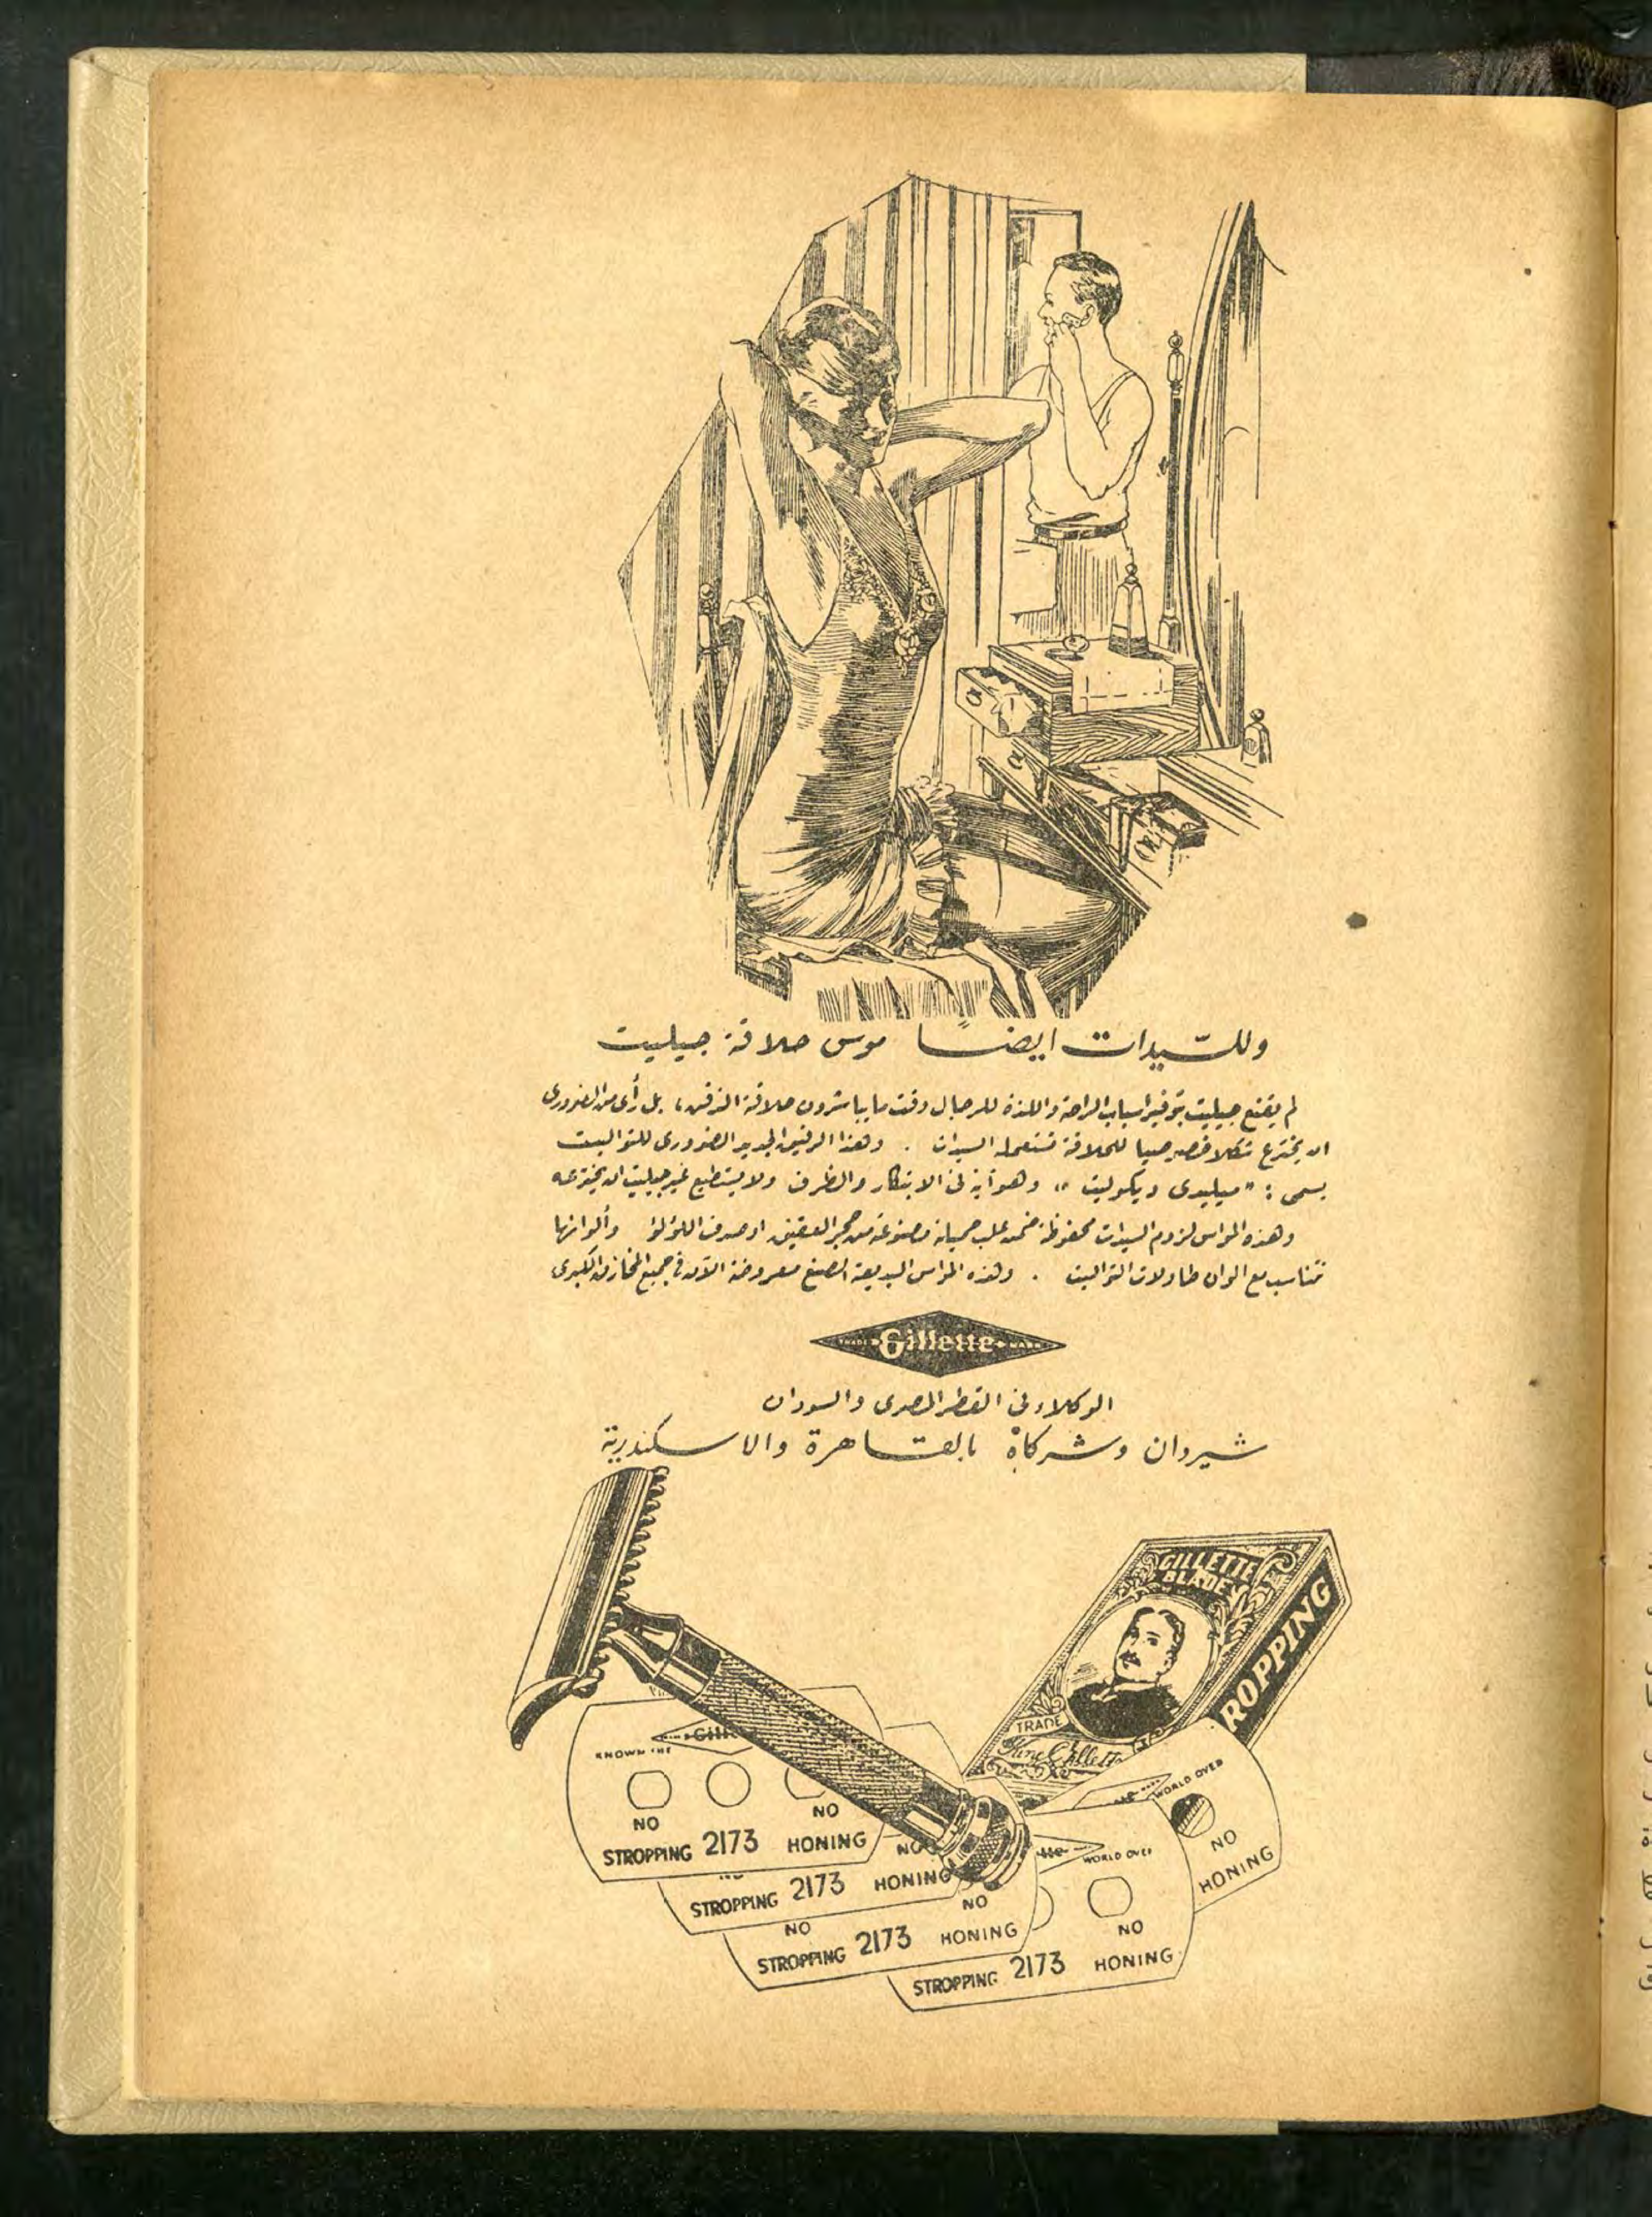 وللسيدات ايضاً موس حلاقة جيليت
لم يقنع جيليت بتوفير اسباب الراحة واللذة للرجال وقت ما يباشرون حلاقة الذقن، بل رأى من الضرورى
ان يخترع شكلا خصوصيا للحلاقة تستعمله السيدات . وهذا الرفيق الجديد الضرورى للتواليت
يسمى : "ميليدى ديكوليت" وهو آية فى الابتكار والظرف ولا يستطيع غير جيليت ان يخترعه
وهذه المواس لزوم السيدات محفوظة ضمن علب جميلة مصنوعة من حجر العقيق او صدف اللؤلؤ وألوانها
تتناسب مع الوان طاولات التواليت . وهذه المواس البديعة الصنع معروضة الآن فى جميع المخازن الكبرى
TRADE Gillette MARK
الوكلاء فى القطر المصرى والسودان
شيردان وشركاه بالقاهرة والاسكندرية
GILLETTE
BLADE
ROPPING
TRADE
King C Gillette
KNOWN THE
NO NO
STROPPING 2173 HONING
WORLD OVER
NO
HONING
NO
STROPPING 2173 HONING
WORLD OVER
NO NO
STROPPING 2173 HONING
NO
STROPPING 2173 HONING